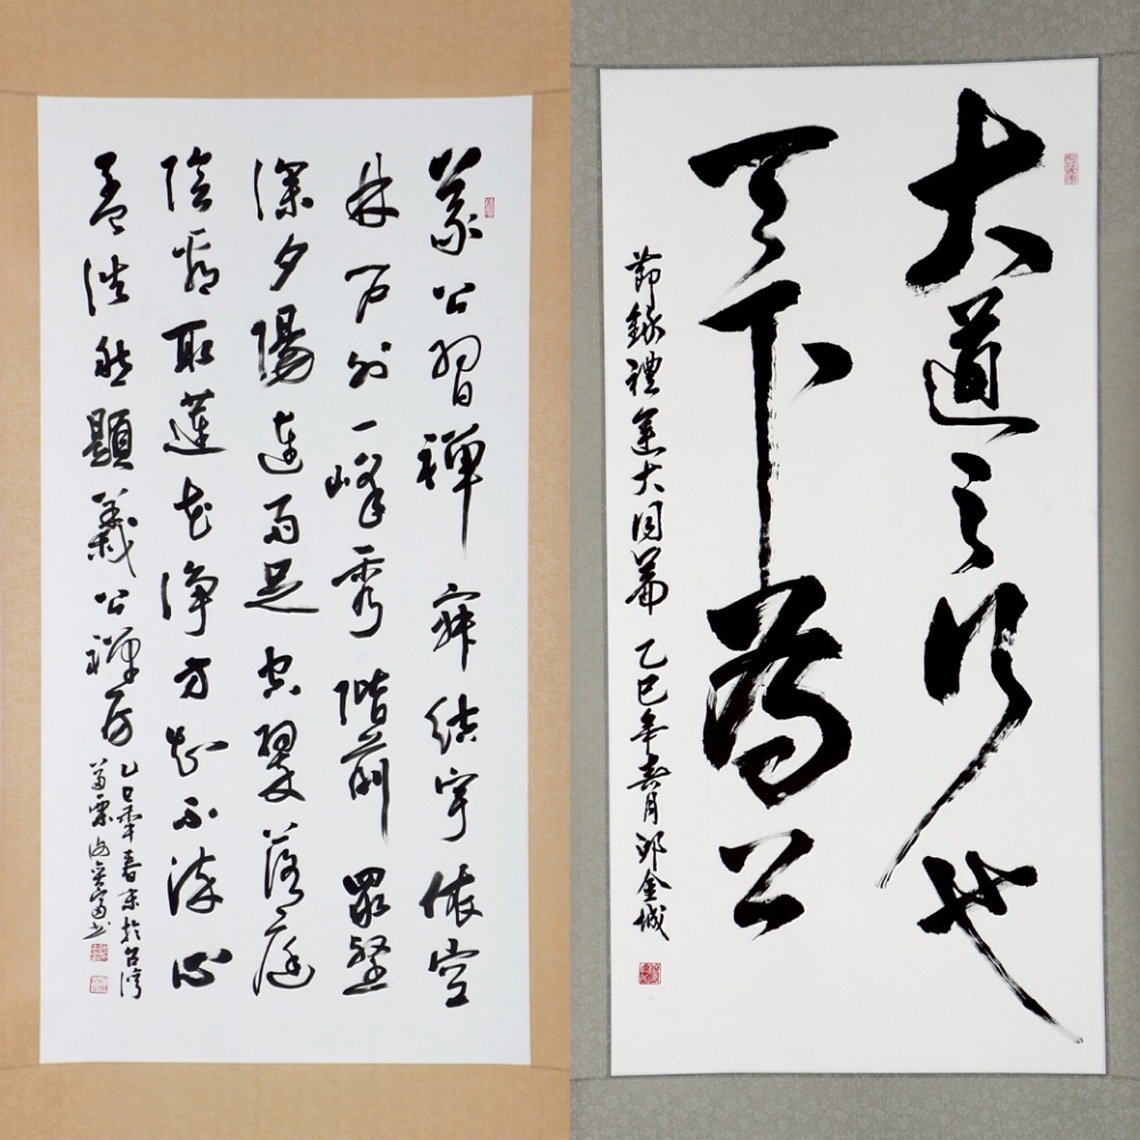 義公習禪寂結宇依空
林戶外一峰秀階前眾壑
深夕陽連雨足空翠落庭
陰看取蓮花淨方知不染心
孟浩然題義公禪房
乙巳年春末於台灣
大道之行也
天下為公
節錄禮運大同篇 乙巳年春月邱金城